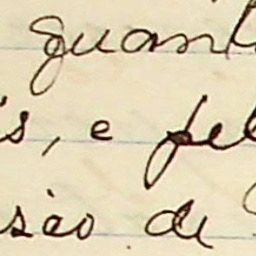 quant
is, e pel
são de